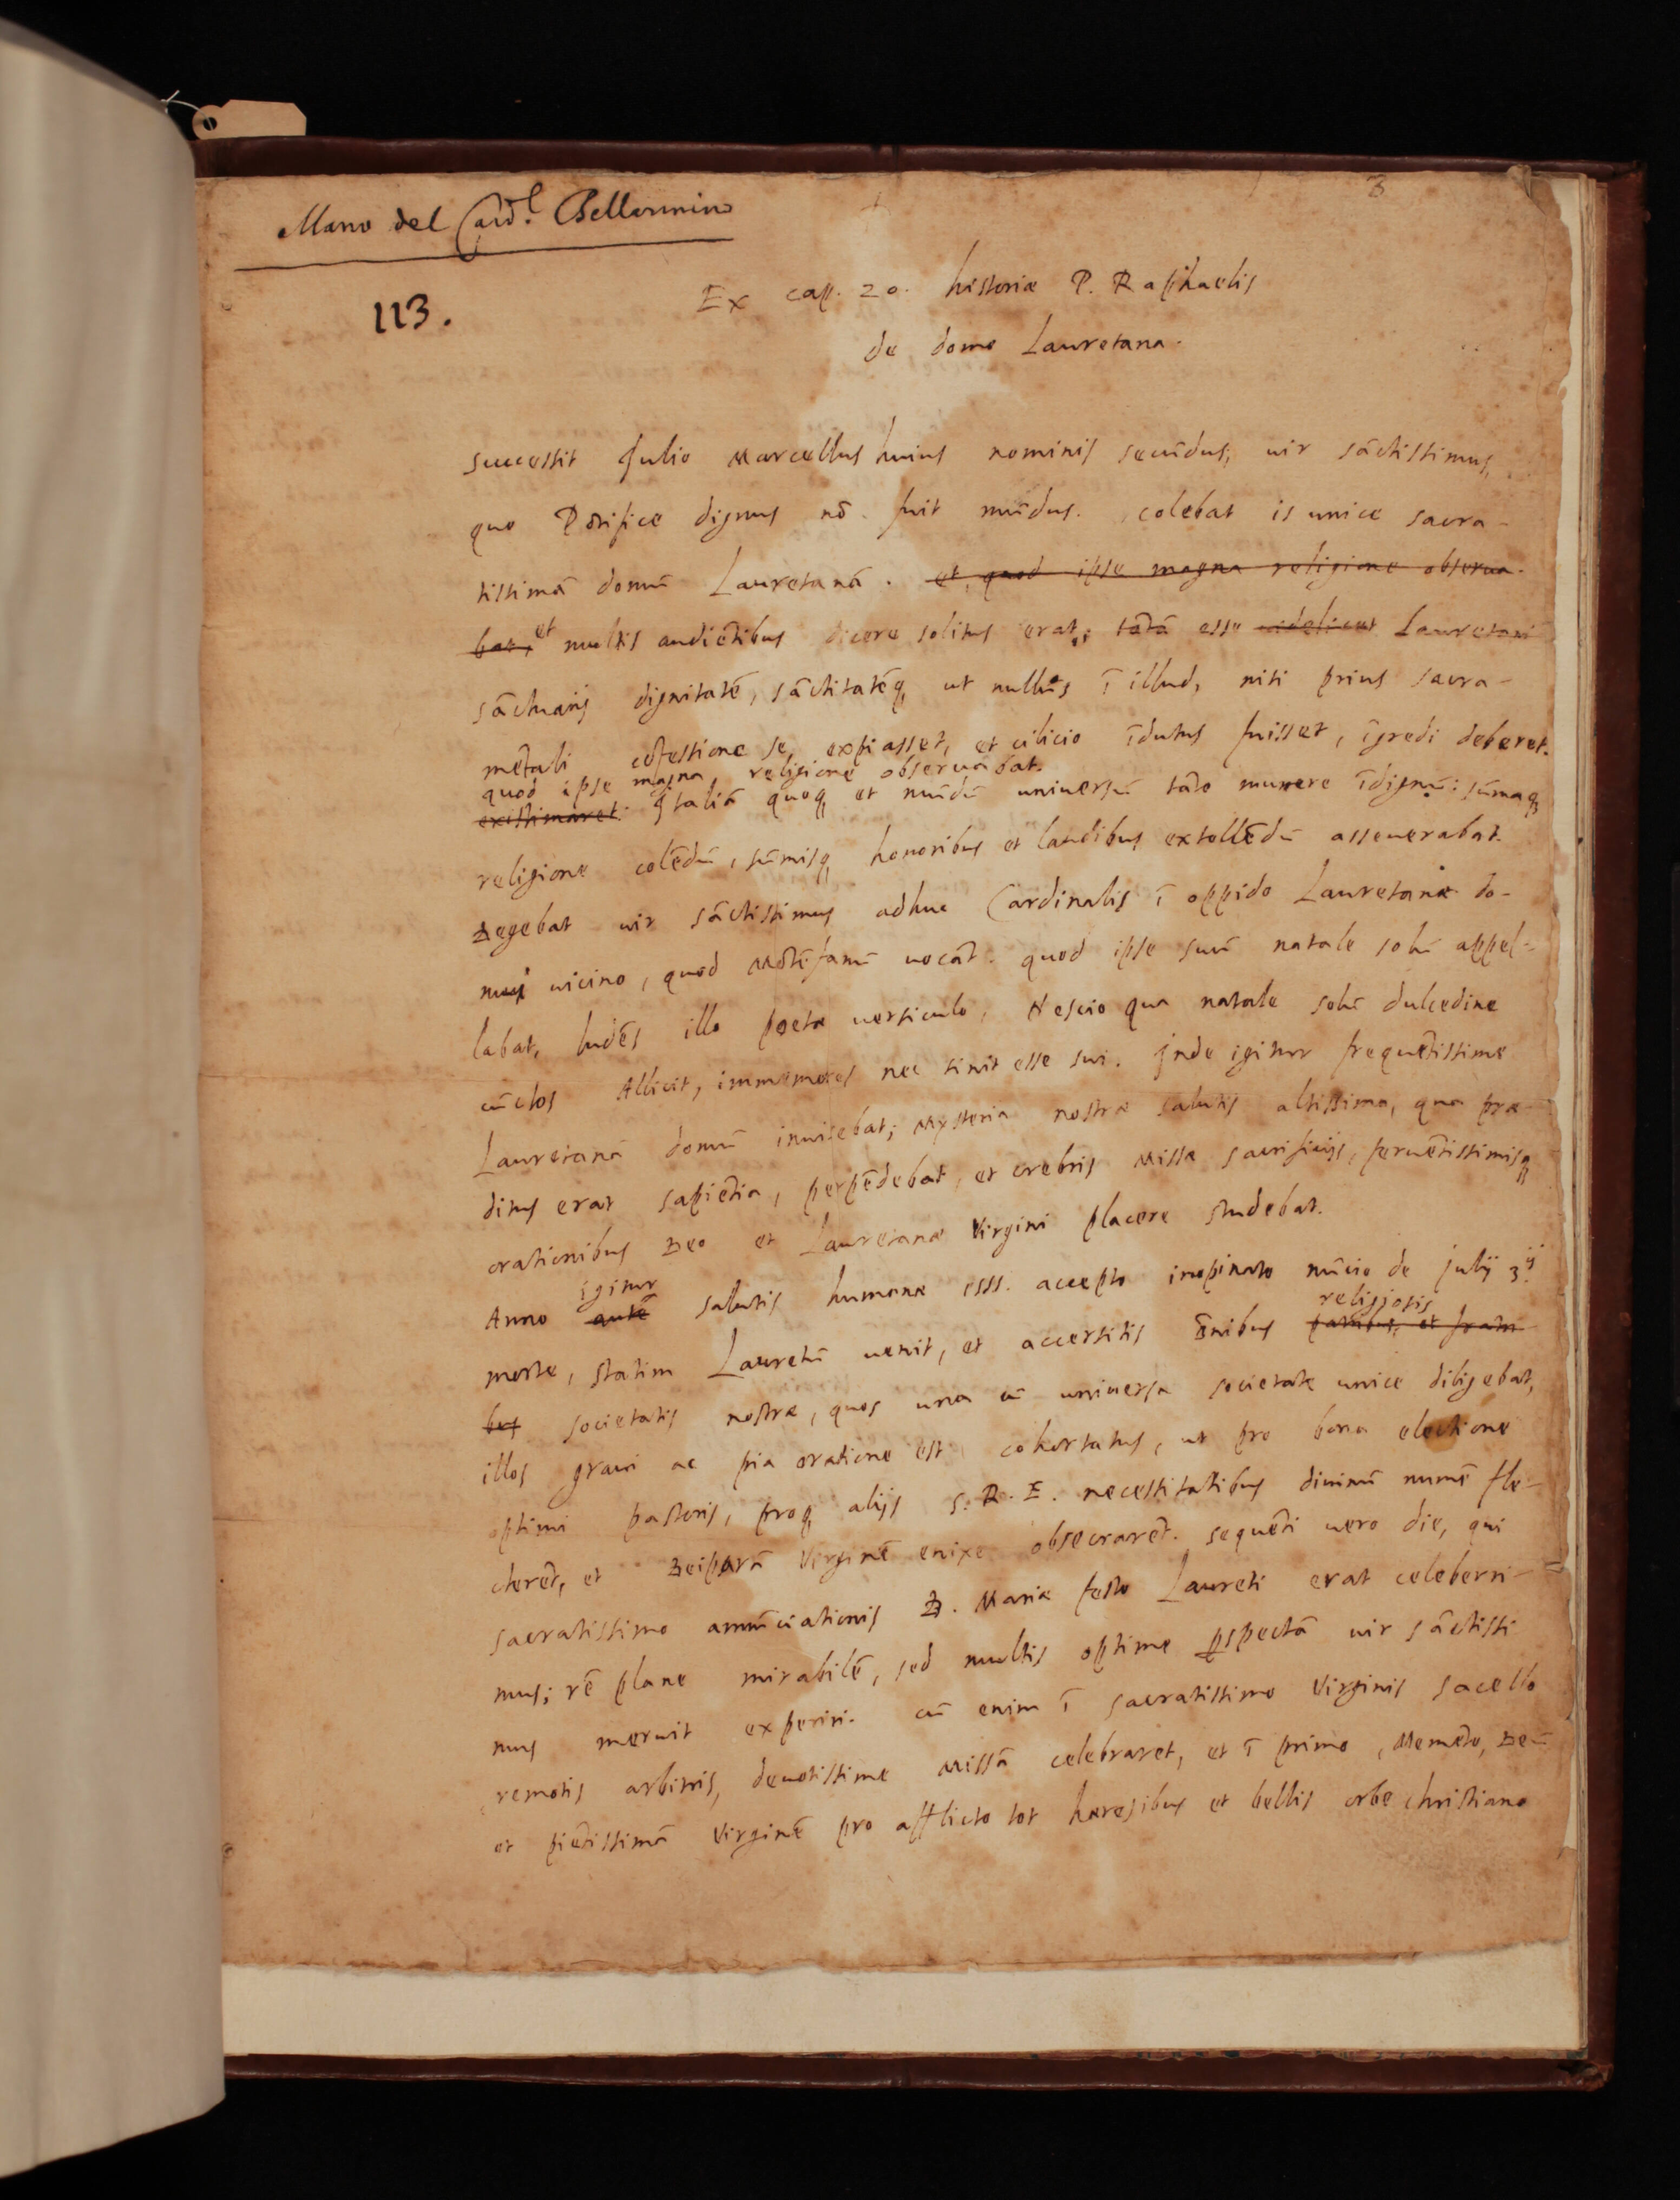 Mano del Card.l Bellarmino
3
113.
Ex cap. 20. historiæ P. Raphaelis
de domo Lauretana.
successit Julio Marcellus huius nominis secūdus, uir sāctissimus,
quo Pōtifice dignus nō fuit mūdus. colebat is unice sacra-
tissimā domū Lauretanā. et, quod ipse magna religione obserua-
bat, et multis audiētibus dicere solitus erat; tātā esse uidelicet Lauretani
sāctuarij dignitatē, sāctitatēq, ut nullus ī illud, nisi prius sacra-
mētali cōfessione se expiasset, et cilicio īdutus fuisset, īgredi deberet.
quod ipse magna religione obseruabat.
existimaret. Italiā quoq et mūdū uniuersū tāto munere īdignū: sūmaq
religione colēdū, sūmisq honoribus et laudibus extollēdū asseuerabat.
Degebat uir sāctissimus adhuc Cardinalis ī oppido Lauretanæ do-
mui uicino, quod Mōtēfanū uocāt. quod ipse suū natale solū appel-
labat, ludēs illo poetæ uersiculo, Nescio qua natale solū dulcedine
cūctos Allicit, immemores nec sinit esse sui. Inde igitur frequētissime
Lauretanā domū inuisebat; Mysteria nostræ salutis altissima, qua præ-
ditus erat sapiētia, perpēdebat, et crebris Missæ sacrificijs, feruētissimisq
orationibus Deo et Lauretanæ Virgini placere studebat.
igitur
Anno autē salutis humanæ 1555. accepto inopinato nūcio de Julij 3ij
religiosis
morte, statim Lauretū uenit, et accersitis ōnibus patribus, et fratri-
bus societatis nostræ, quos una cū uniuersa societate unice diligebat,
illos graui ac pia oratione est cohortatus, ut pro bona electione
optimi pastoris, proq alijs S. R. E. necessitatibus diuinū numē fle-
cterēt, et Deiparā Virginē enixe obsecrarēt. sequēti uero die, qui
sacratissimo annūciationis D. Mariæ festo Laureti erat celeberri-
mus; rē plane mirabilē, sed multis optime pspectā uir sāctissi
mus meruit experiri. cū enim ī sacratissimo Virginis sacello
remotis arbitris, deuotissime Missā celebraret, et ī primo, Memēto, Deū
et piētissimā Virginē pro afflicto tot hæresibus et bellis orbe christiano